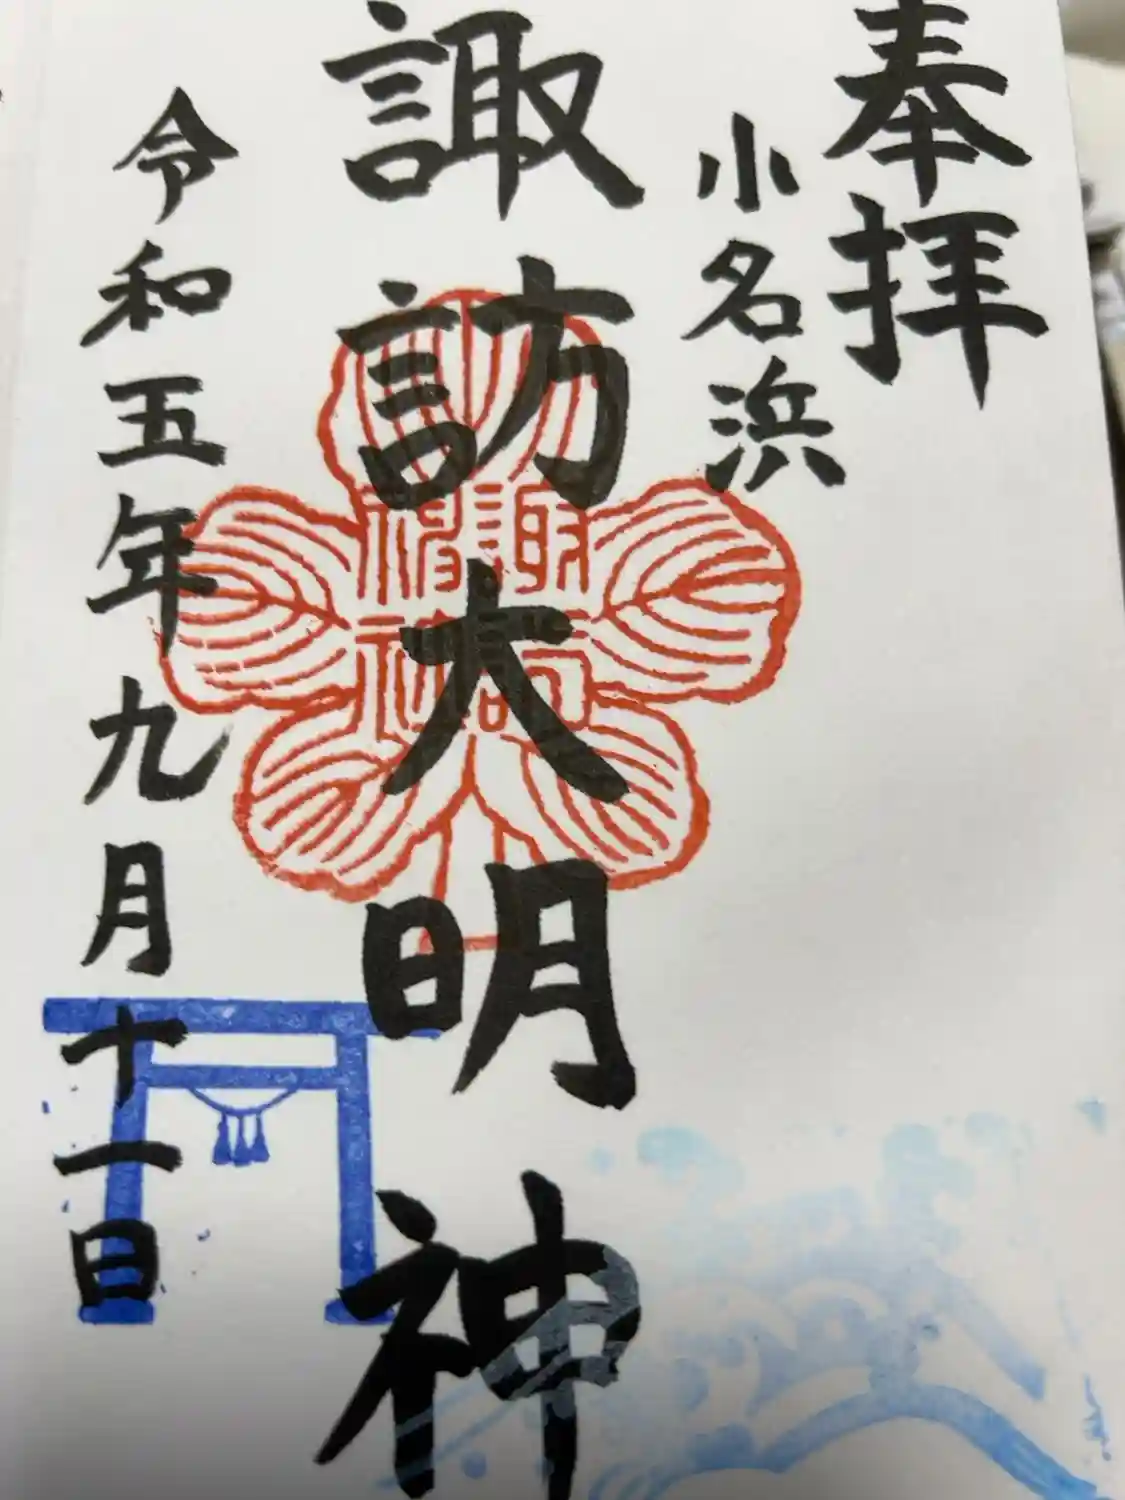 奉拝
小名浜
諏訪大明神
令和五年九月十一日
諏訪
神社